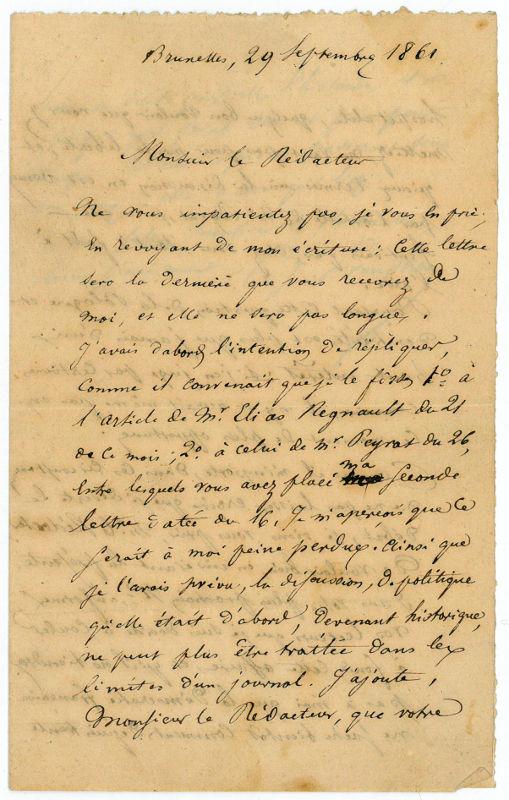 Bruxelles, 29 Septembre 1861.
Monsieur le Rédacteur
Ne vous impatientez pas, je vous en prie,
en revoyant de mon écriture : Cette lettre
sera la dernière que vous recevrez de
moi, et elle ne sera pas longue.
J'avais d'abord l'intention de répliquer,
comme il convenait que je le fisse 1º à
l'article de Mr. Elias Regnault du 21
de ce mois ; 2º à celui de Mr. Peyrat du 26,
entre lesquels vous avez placé ma seconde
lettre datée du 16. Je m'aperçois que ce
serait à moi peine perdue. Ainsi que
je l'avais prévu, la discussion, de politique
qu'elle était d'abord, devenant historique,
ne peut plus être traitée dans les
limites d'un journal. J'ajoute,
Monsieur le Rédacteur, que votre